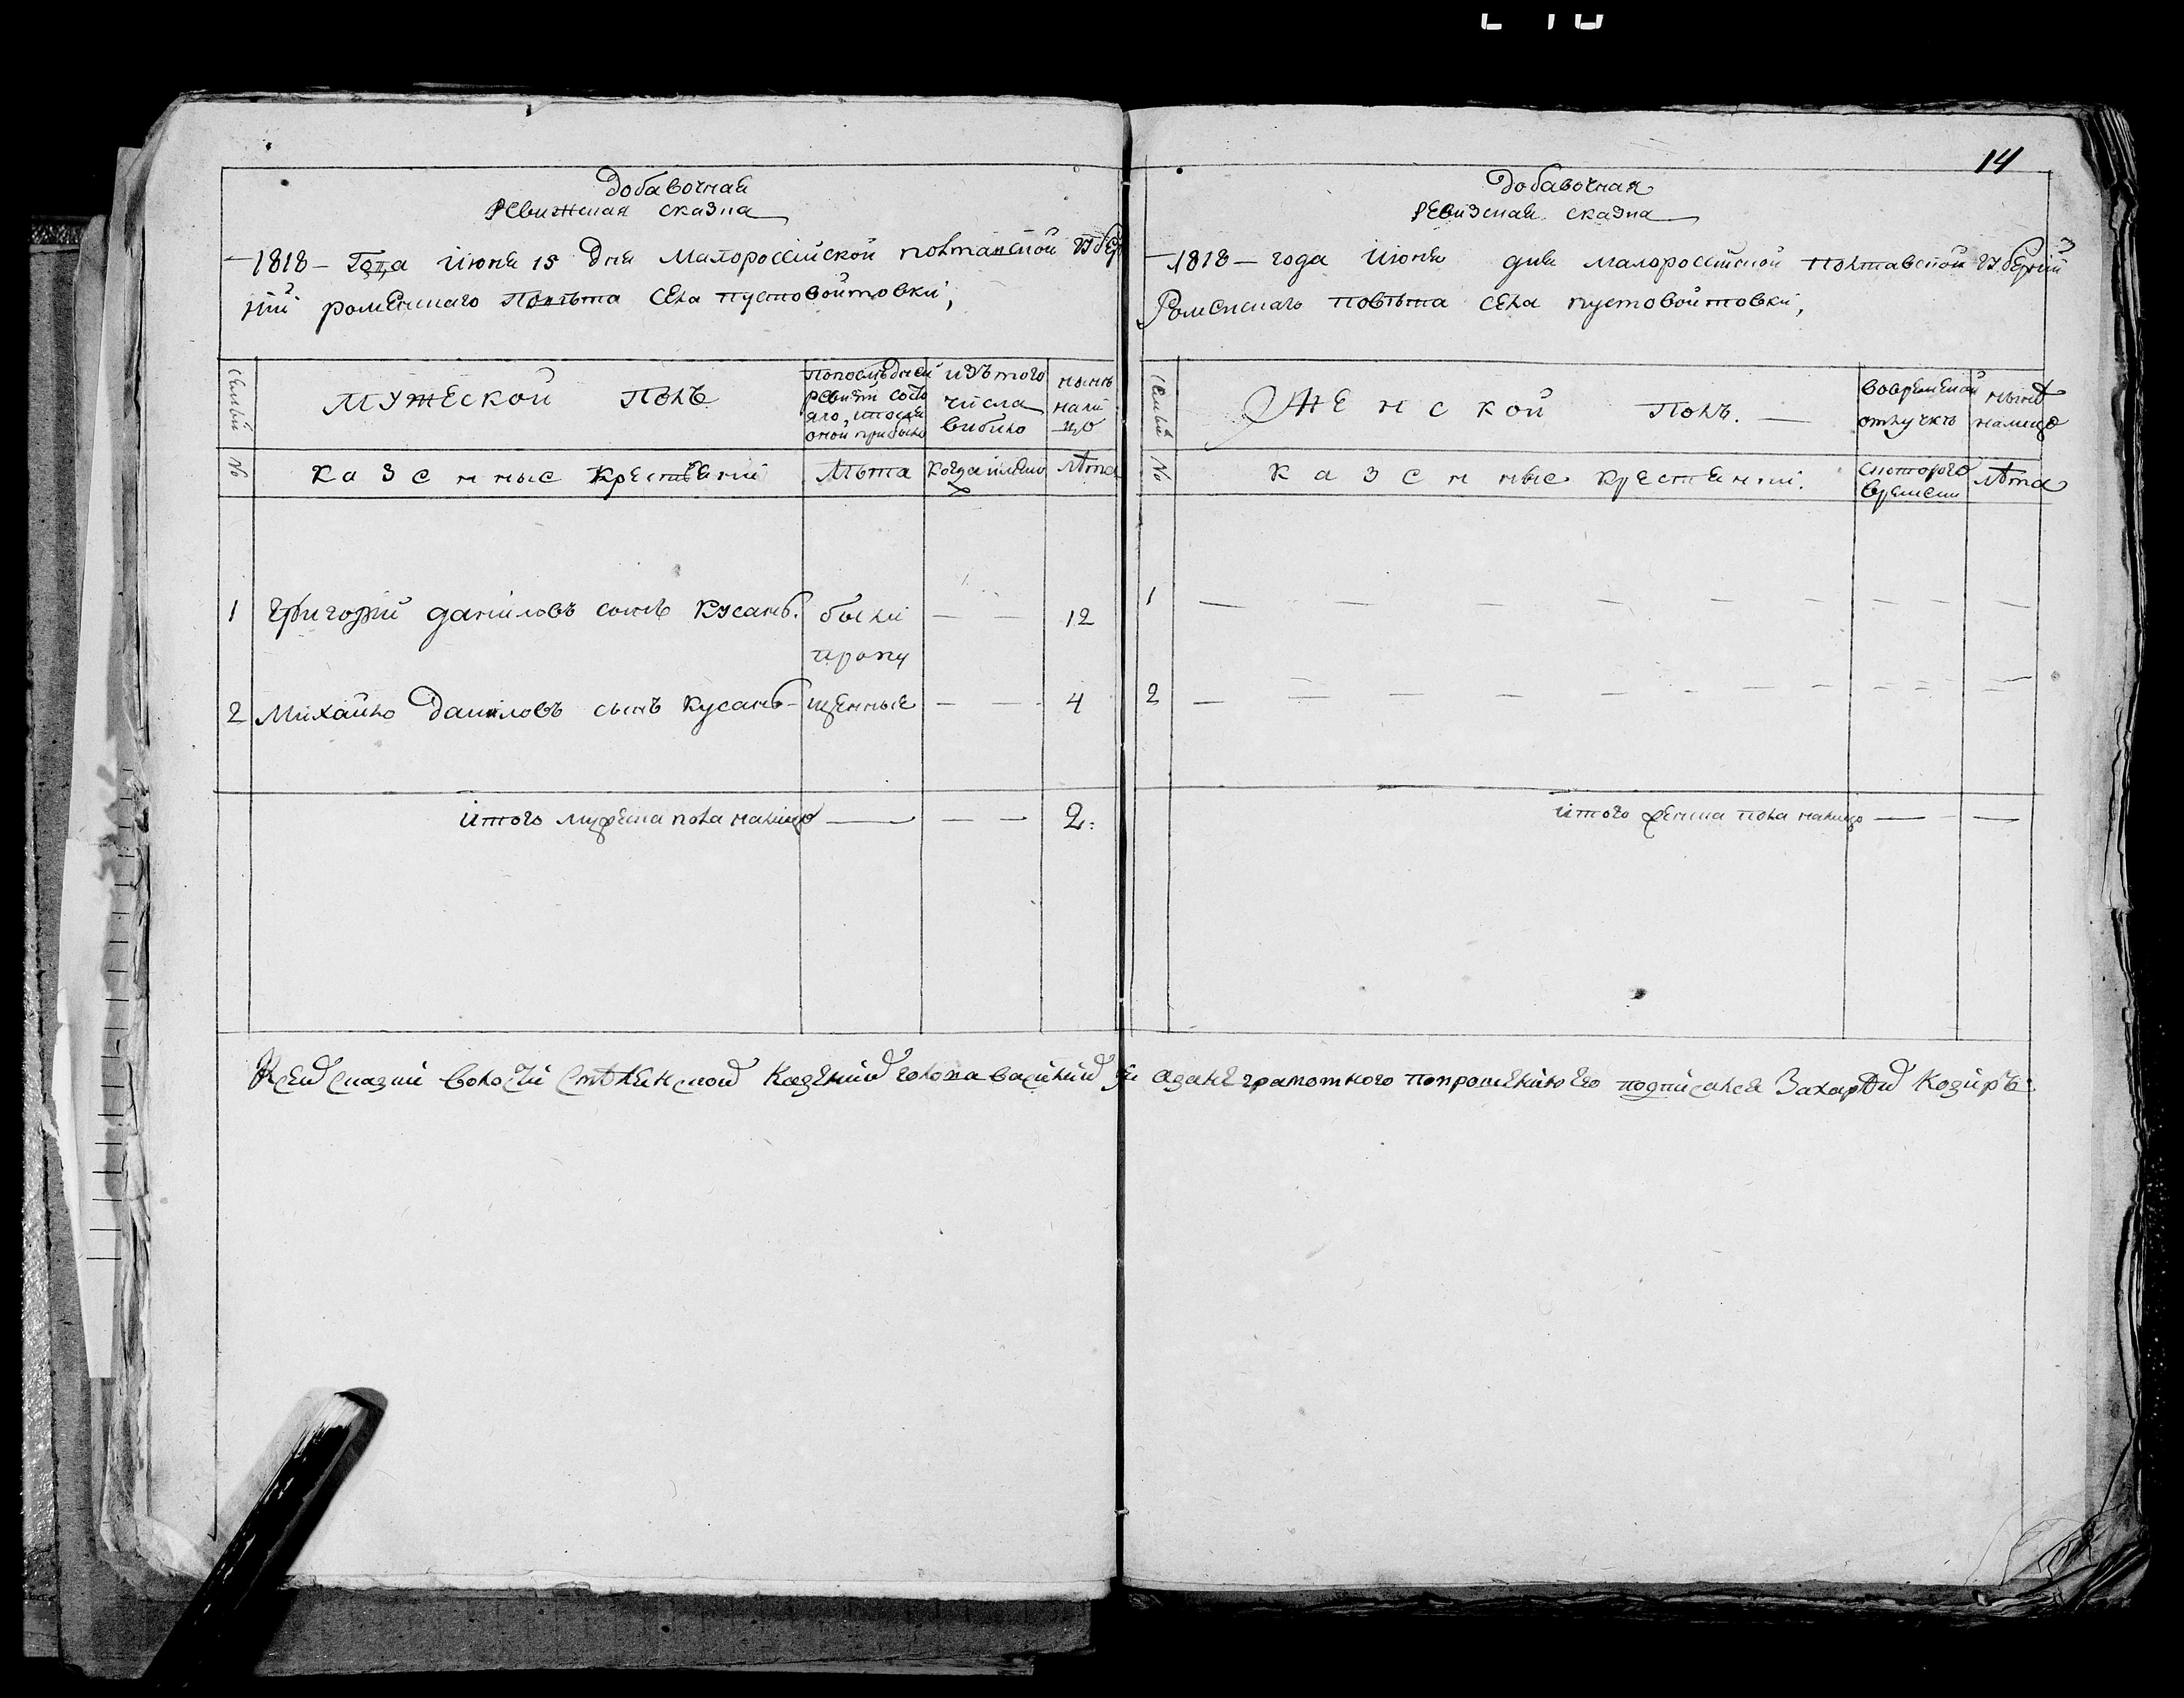 Добавочная
Ревижская сказка
1818 – Года июня 15 Дня Малороссійской полтавской Губер
ніи роменскаго Повѣта села пустовойтовки,
семьи
Мужеской Полъ
По последней
ревизіи состо
яло, и после
оной прибыло
изъ того
числа
вибило
нынѣ
нали
цо
№
казенные крестьяни
лѣта
когда имено
лѣта
1 Григорій даниловъ сынъ Кусакъ. были – – 12
пропу
2 Михайло Даниловъ сынъ Кусакъ – щенные – – 4
итого мужеска пола налицо – – – 2:
14
Добавочная
ревизская сказка
1818 – года июня дня малороссійской Полтавской Губерніи
Роменскаго повѣта села пустовойтовки,
семьи
Женской Полъ. –
вовременой
отлучкѣ
нынѣ
налицо
№
казенные крестяни.
с которого
времени
лѣта
1 – – – – – – – – – –
2 – – – – – – – – – –
итого женска пола налицо – – –
К сей сказки волости Смѣлянской Казенній голова василий а за не грамотного попрошенію его подписался Захарѣй Козиръ